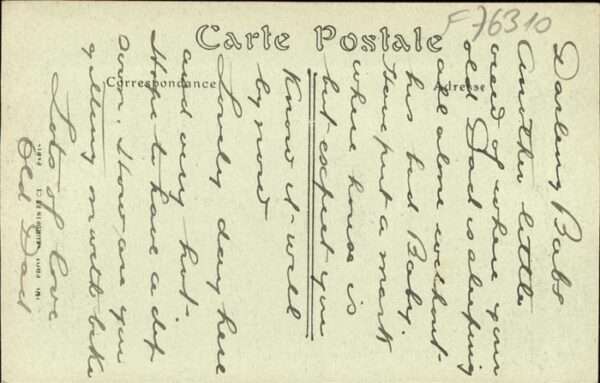 F 76310
Carte Postale
Correspondance
Adresse
Darling Babs
Another little
view of where your
old Dad is sleeping
all alone without
his bed Baby.
Have put a mark
where house is
but expect you
know it well
by now
Lovely day here
and very hot
Hope to have a dip
soon. How are you
getting on with bike
Lots of love
Old Dad